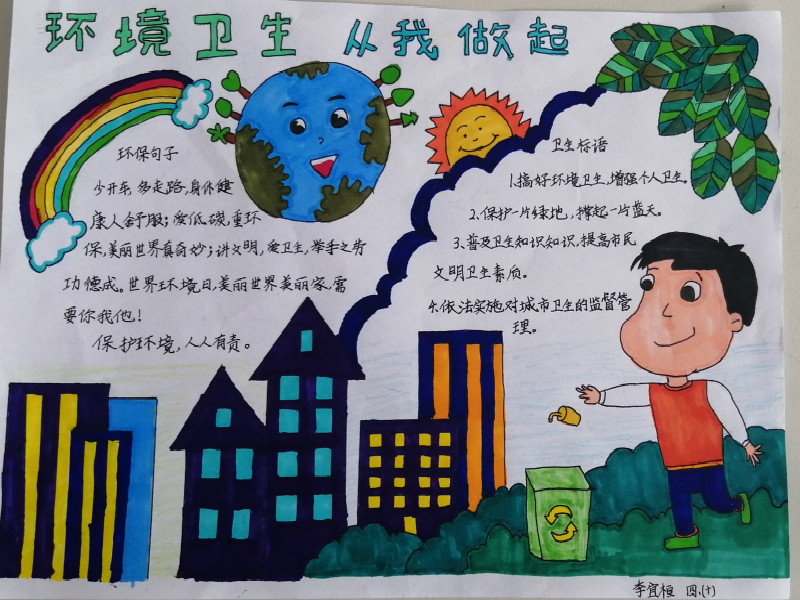 环境卫生 从我做起
环保句子
少开车,多走路,身体健
康人舒服;爱低碳,重环
保,美丽世界真奇妙;讲文明,爱卫生,举手之劳
功德成。世界环境日,美丽世界美丽家,需
要你我他!
保护环境,人人有责。
卫生标语
1.搞好环境卫生,增强个人卫生。
2.保护一片绿地,撑起一片蓝天。
3.普及卫生知识知识,提高市民
文明卫生素质。
4.依法实施对城市卫生的监督管
理。
李宜桓 四、(十)